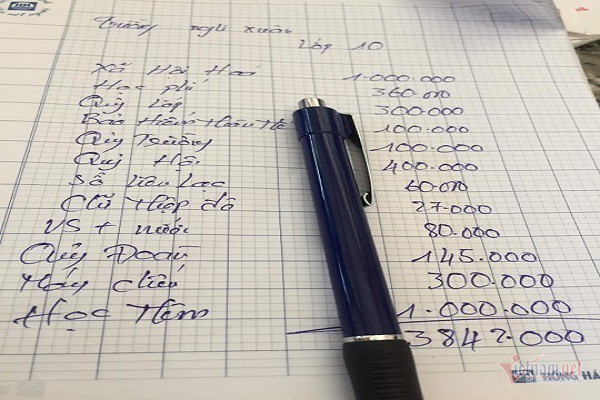 trường nghi xuân
Lớp 10
Xã Hội Hoá 1.000.000
Học phí 360.000
Quỹ lớp 300.000
Bảo Hiểm Thân Thể 100.000
Quỹ Trường 100.000
Quỹ Hội 400.000
Sổ liên lạc 60.000
Chữ thập đỏ 27.000
VS + nước 80.000
Quỹ Đoàn 145.000
Máy chiếu 300.000
Học thêm 1.000.000
3842.000
vietnamnet
HỒNG HÀ